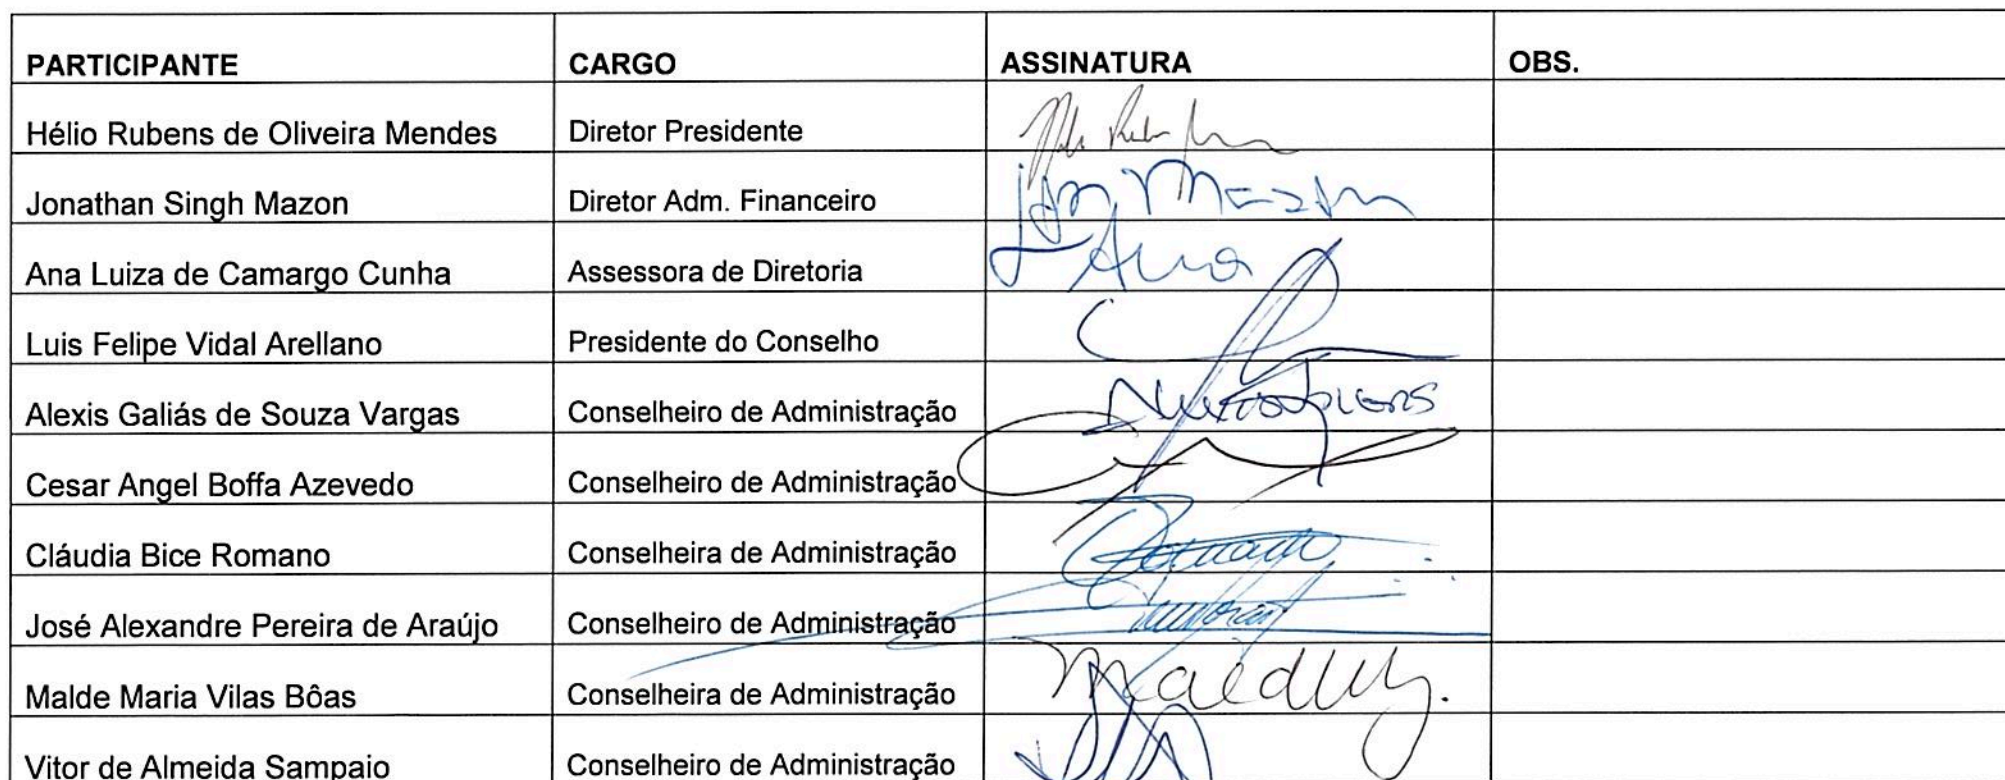 PARTICIPANTE CARGO ASSINATURA OBS.
Hélio Rubens de Oliveira Mendes Diretor Presidente
Jonathan Singh Mazon Diretor Adm. Financeiro
Ana Luiza de Camargo Cunha Assessora de Diretoria Ana
Luis Felipe Vidal Arellano Presidente do Conselho
Alexis Galiás de Souza Vargas Conselheiro de Administração
Cesar Angel Boffa Azevedo Conselheiro de Administração
Cláudia Bice Romano Conselheira de Administração Romano
José Alexandre Pereira de Araújo Conselheiro de Administração
Malde Maria Vilas Bôas Conselheira de Administração
Vitor de Almeida Sampaio Conselheiro de Administração